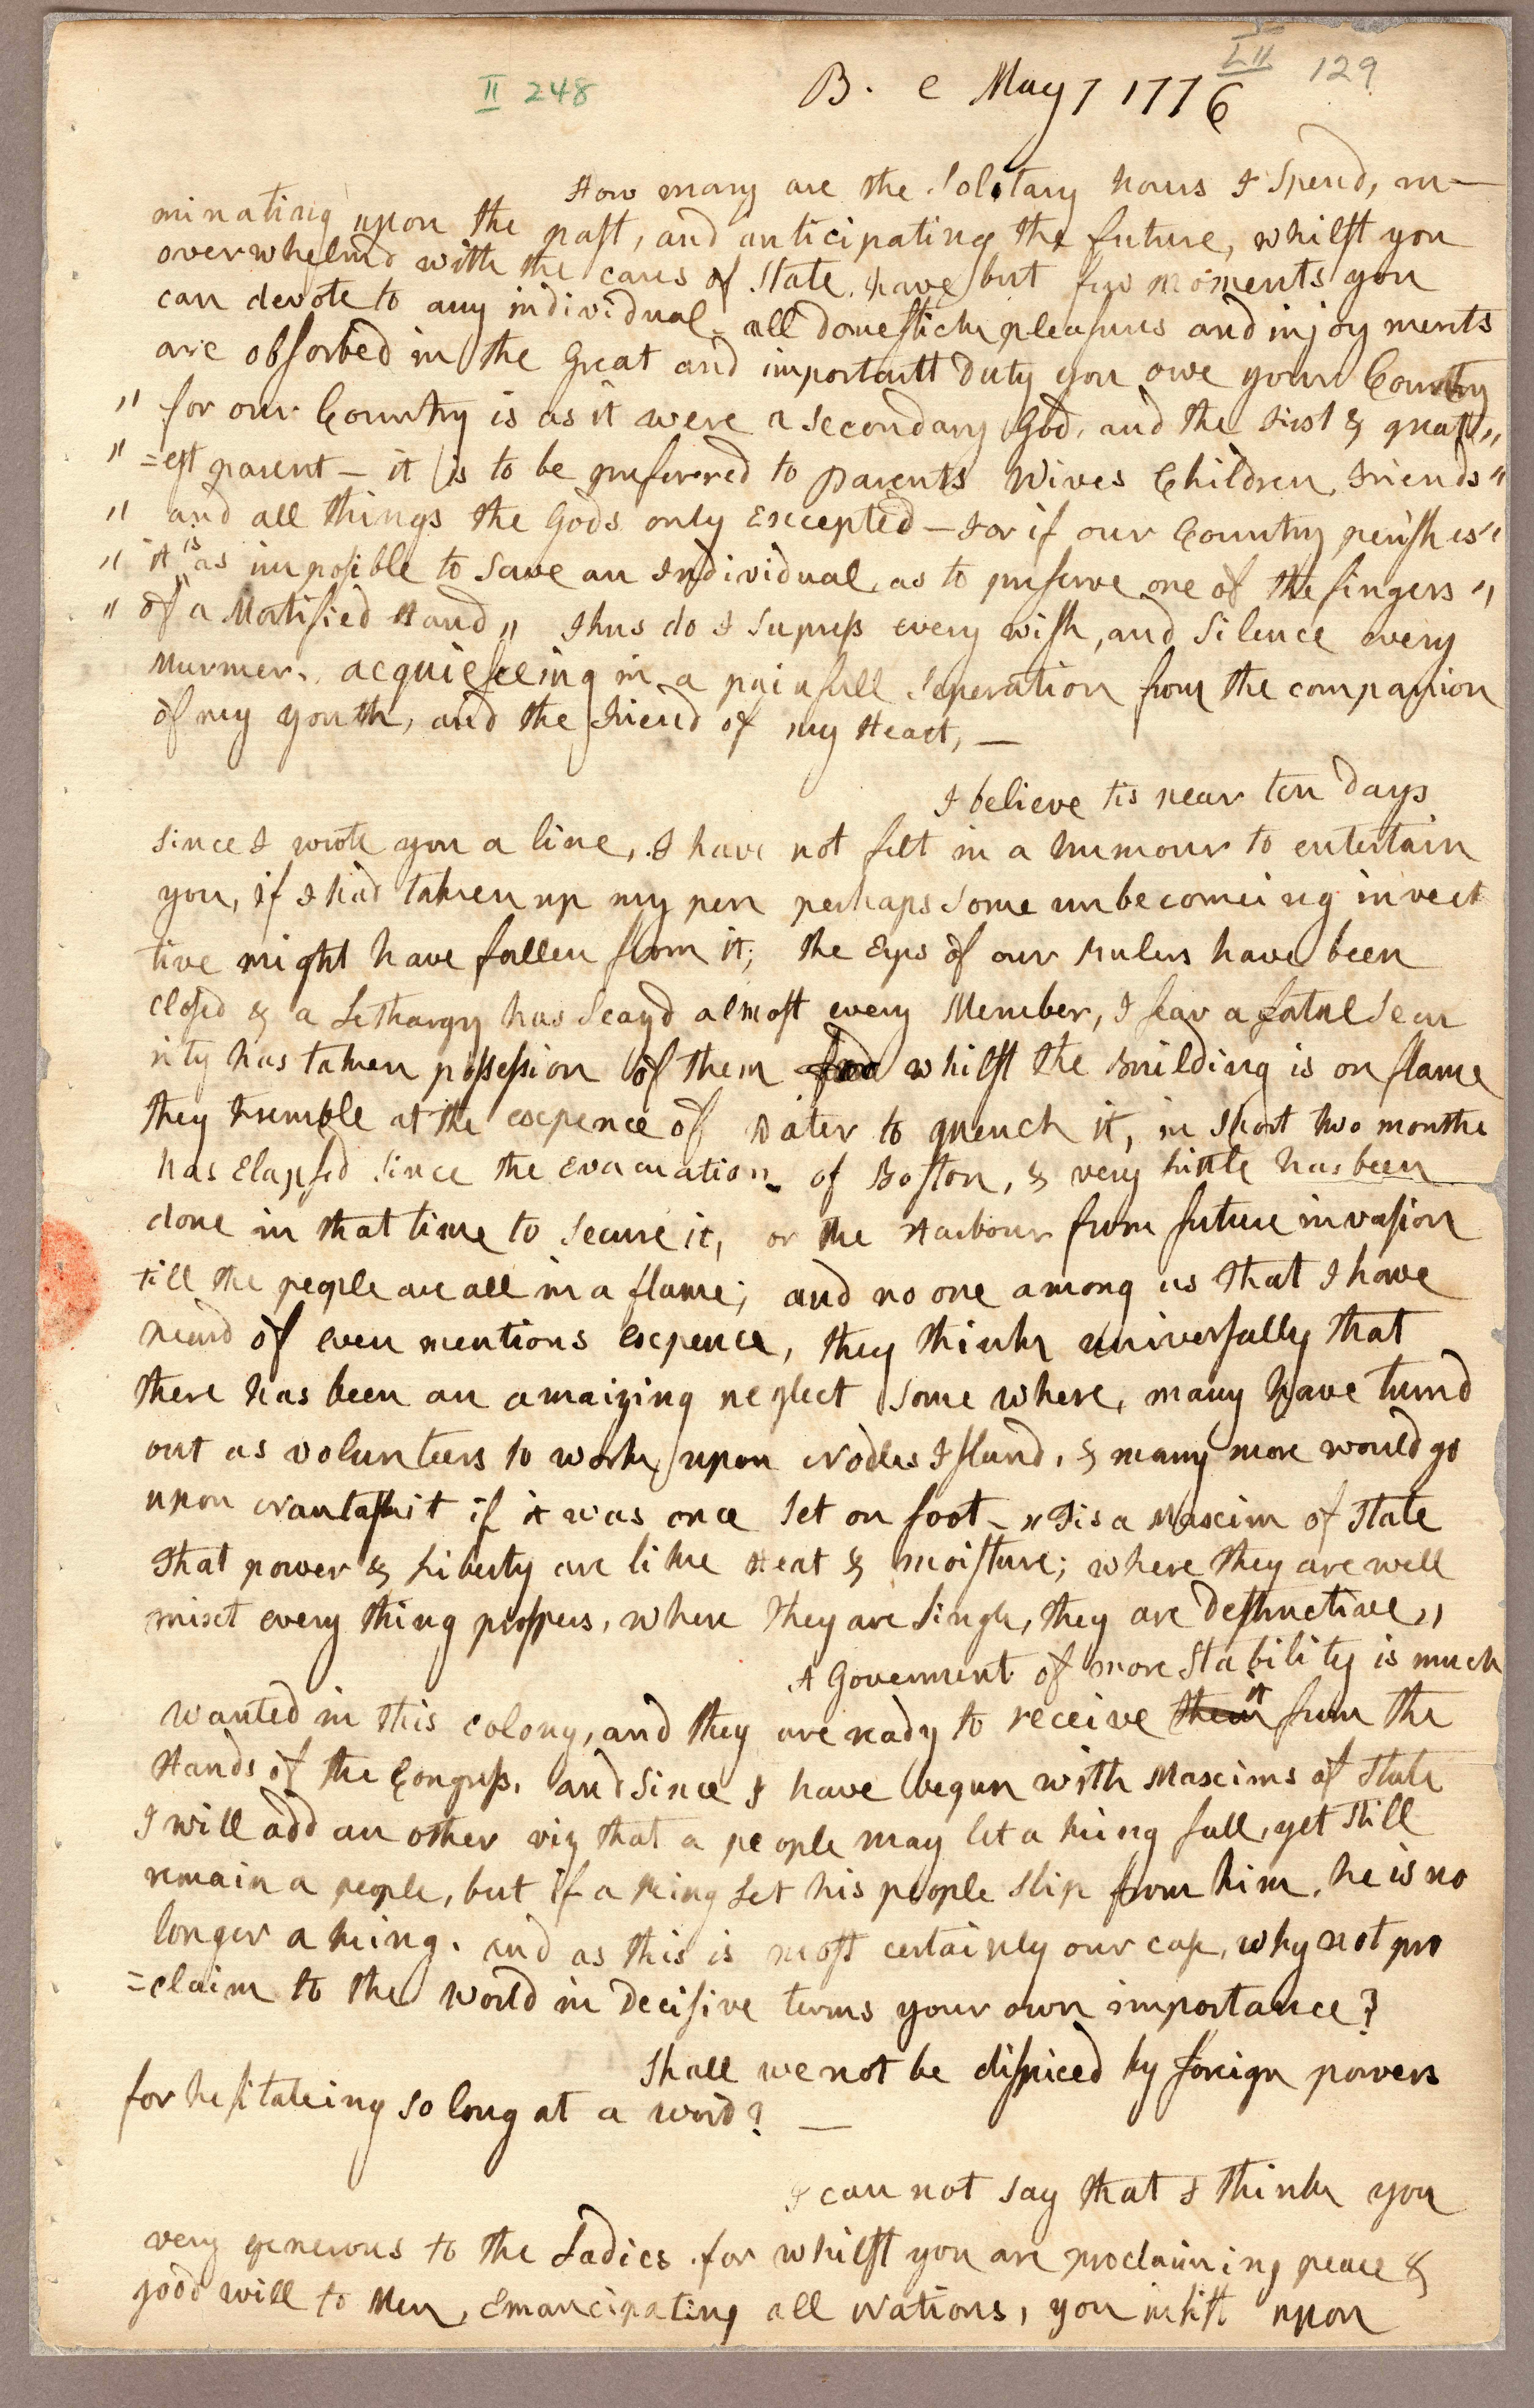 II 248
LII 129
B. e May 7 1776
How many are the Solitary hours I Spend, ru-
minating upon the past, and anticipating the future, whilst you
overwhelmd with the cares of State, have but few moments you
can devote to any individual. all domestick pleasures and injoyments
are absorbed in the great and important Duty you owe your Country
" for our Country is as it were a Secondary God, and the First & great "
" =est parent - it is to be preferred to parents Wives Children, Friends "
" and all things the Gods only Excepted - For if our Country perishes "
" it is as imposible to Save an Individual, as to preserve one of the fingers "
" of a Mortified Hand " Thus do I Supress every wish, and Silence every
Murmer, acquiesceing in a painfull Seperation from the companion
of my youth, and the Friend of my Heart, -
I believe tis near ten Days
Since I wrote you a line, I have not felt in a humour to entertain
you, if I had taken up my pen perhaps Some unbecomeing invec
tive might have fallen from it; the Eyes of our Rulers have been
closed & a Lethargy has Seazd almost every Member, I fear a fatal Secu
rity has taken possession of them whilst the Building is on flame
they tremble at the expence of Water to quench it, in Short two months
has Elapsed Since the Evacuation of Boston, & very little has been
done in that time to Secure it, or the Harbour from future invasion
till the people are all in a flame; and no one among us that I have
heard of even mentions expence, they think universally that
there has been an amaizing neglect Some where, many have turnd
out as volunteers to work upon Nodles Island, & many more would go
upon Nantaskit if it was once Set on foot - " Tis a Maxim of State
That power & Liberty are like Heat & moisture; where they are well
mixt every thing prospers, where they are Single, they are destructive "
A Goverment of more Stability is much
wanted in this colony, and they are ready to receive them it from the
Hands of the Congress, and Since I have begun with Maxims of State
I will add an other viz that a people may let a king fall, yet Still
remain a people, but if a king let his people Slip from him, he is no
longer a king. and as this is most certainly our case, why not pro
=claim to the World in Decisive terms your own importance?
Shall we not be dispiced by foreign powers
for hesitateing so long at a word? -
I can not say that I think you
very generous to the Ladies, for whilst you are proclaiming peace &
good will to Men, Emancipating all Nations, you insist upon